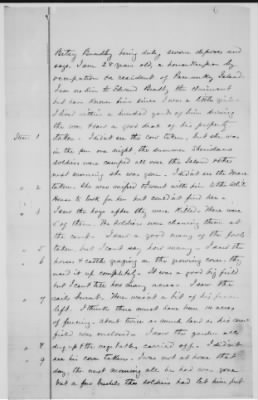 Betsey Bradby being duly sworn deposes and
says. I am 28 years old, a housekeeper by
occupation & a resident of Pamunky Island.
I am no kin to Edward Bradby the claimant
but have known him since I was a little girl.
I lived within a hundred yards of him during
the war & saw a good deal of his property
taken. I didn't see the cow taken, but she was
Item 1 in the pen one night the summer Sheridans
soldiers were camped all over the Island & the
next morning she was gone. I didn't see the mare
" 2 taken. She was
House to look for her but couldn't find her.
" 4 I saw the hogs after they were killed. There were
5 of them. The soldiers were cleaning them at
the camp. I saw a good many of the fowls
" 5 taken but I can't say how many. I saw the
" 6 horses & cattle grazing on the growing corn, they
used it up completely. It was a good big field
but I can't tell how many acres. I saw the
" 7 early burnt. There wasn't a bit of his fence
left. I think there must have been acres
of fencing, about twice as much land as his corn
field was enclosed. I saw the garden all
" 8 dug up & the vegetables carried off. I didn't
" 9 see his corn taken. I was not at home that
day, the next morning all he had was gone
but a few bushels the soldiers had let him put